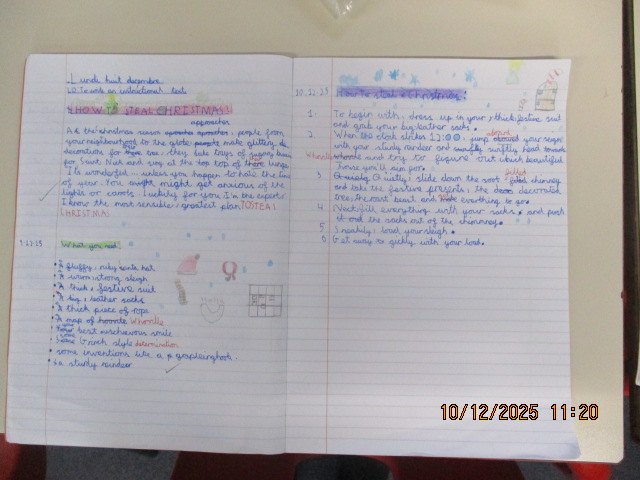 L unde huit decembre
LO: To write an instructional text
HOW TO STEAL CHRISTMAS
approaches
As the christmas season people from
your neighbourhood to the globe make glittery
decorations for tree; they take trays of
for Saint Nick and sing at the top of lungs.
It's wonderful... unless you happen to hate the time
of year. You might get anxious of the
lights or carols. Luckily for you, I'm the expert:
I know the most sensible, greatest plan TO STEAL
CHRISTMAS
What you need
• A fluffy, ruby santa hat
• A warm strong sleigh
• A thick, festive suit
• A big, leather sacks
• A thick piece of rope
• A map of Whoville
• best mischievous smile
• Some Grinch style determination
• some inventions like a graplinghook.
• a sturdy reindeer
10.12.25 How to steal Christmas
1. To begin with, dress up in your, thick, festive suit
and grab your big leather sacks.
2. When the clock strikes 12:00, jump aboard your sleigh
with your sturdy reindeer and swiftly head towards
Whoville and try to figure out which beautiful
house you'll aim for.
3. Quietly, slide down the soot filled chimney
and take the festive presents; the decorated
tree; the roast beast and everthing to go.
4. Next fill everything with your sacks, and push
the sacks out of the chimney.
5. Sneakily: load your sleigh.
6. Get away so quickly with your loot.
10/12/2025 11:20